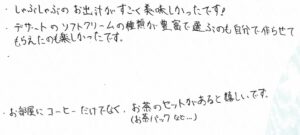 ・しゃぶしゃぶのお出汁がすごく美味しかったです！
・デザートのソフトクリームの種類が豊富で選ぶのも自分で作らせて
もらえたのも楽しかったです。
・
・お部屋にコーヒーだけでなく、お茶のセットがあると嬉しいです。
(お茶パックなど…)